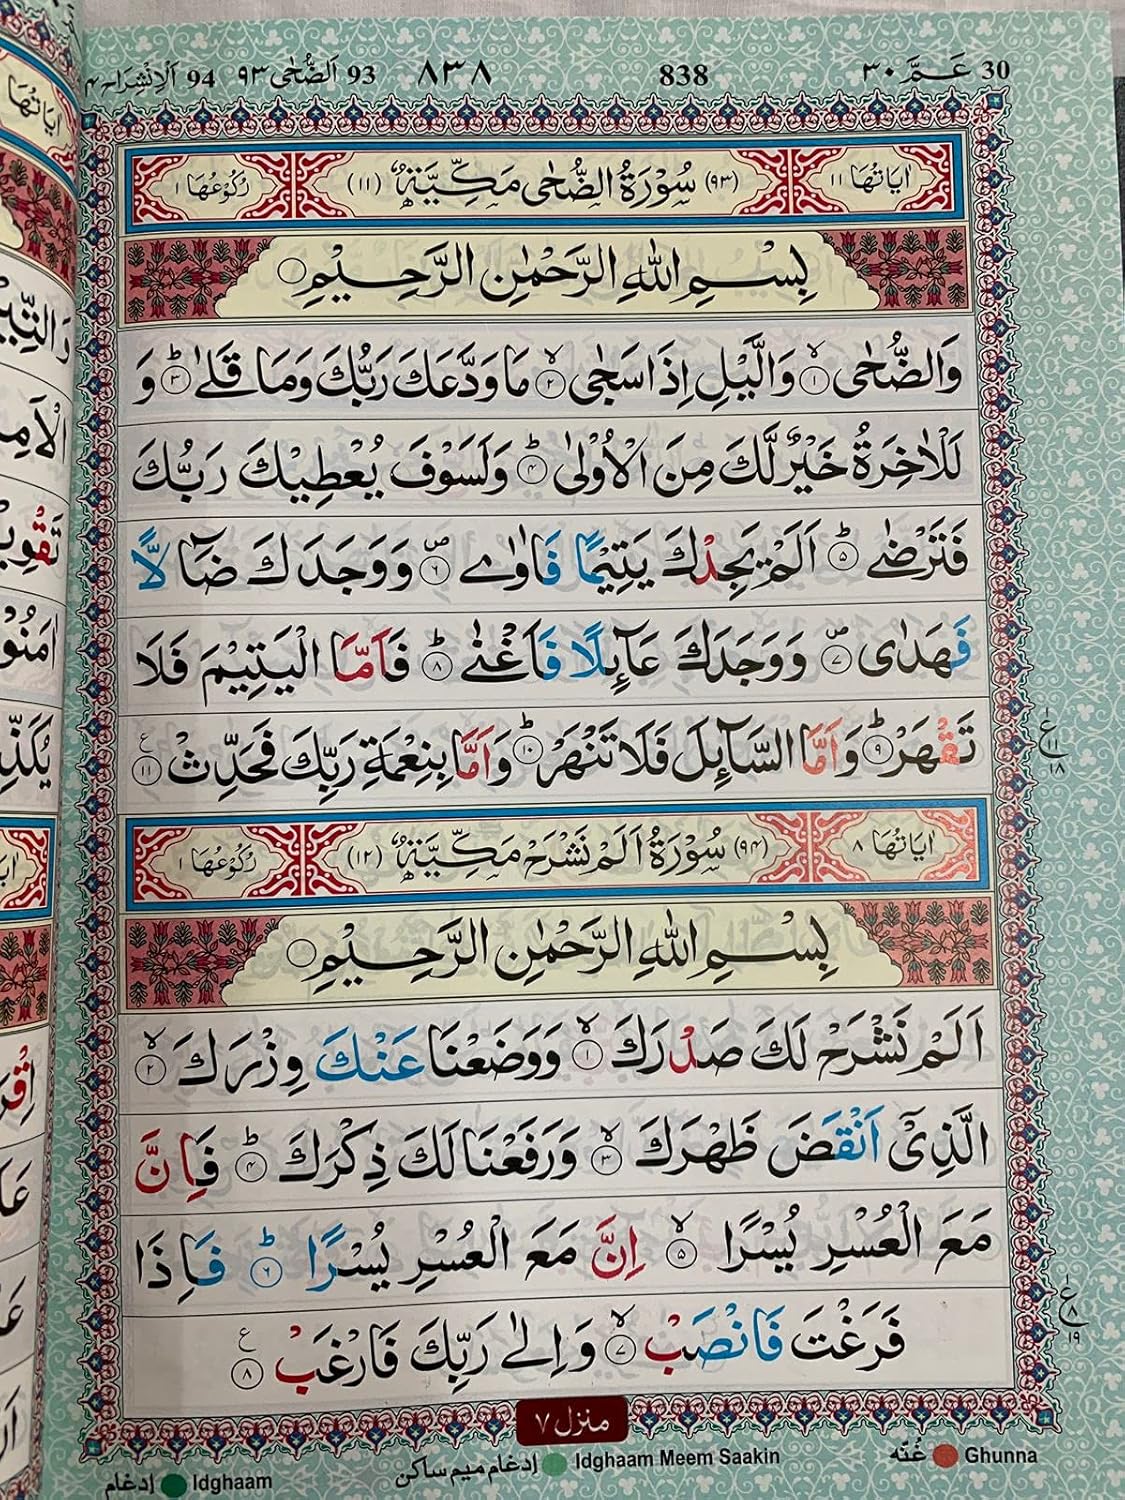 عَـمَّ ٣٠ 30
838
٨٣٨
اَلضُّحٰى ٩٣ 93
اَلْاِنْشِرَاح ٩٤ 94
اٰيَاتُهَا ١١ (٩٣) سُوْرَةُ الضُّحٰى مَكِّيَّةٌ (١١) رُكُوْعُهَا ١
بِسْمِ اللّٰهِ الرَّحْمٰنِ الرَّحِيْمِ
وَالضُّحٰى ۙ١ وَالَّيْلِ اِذَا سَجٰى ۙ٢ مَا وَدَّعَكَ رَبُّكَ وَمَا قَلٰى ؕ٣ وَ
لَلْاٰخِرَةُ خَيْرٌ لَّكَ مِنَ الْاُوْلٰى ؕ٤ وَلَسَوْفَ يُعْطِيْكَ رَبُّكَ
فَتَرْضٰى ؕ٥ اَلَمْ يَجِدْكَ يَتِيْمًا فَاٰوٰى ۪٦ وَوَجَدَكَ ضَآلًّا
فَهَدٰى ۪٧ وَوَجَدَكَ عَآئِلًا فَاَغْنٰى ؕ٨ فَاَمَّا الْيَتِيْمَ فَلَا
تَقْهَرْ ؕ٩ وَاَمَّا السَّآئِلَ فَلَا تَنْهَرْ ؕ١٠ وَاَمَّا بِنِعْمَةِ رَبِّكَ فَحَدِّثْ ١١ ع
ع ١١ ١٨
اٰيَاتُهَا ٨ (٩٤) سُوْرَةُ اَلَمْ نَشْرَحْ مَكِّيَّةٌ (١٢) رُكُوْعُهَا ١
بِسْمِ اللّٰهِ الرَّحْمٰنِ الرَّحِيْمِ
اَلَمْ نَشْرَحْ لَكَ صَدْرَكَ ۙ١ وَوَضَعْنَا عَنْكَ وِزْرَكَ ۙ٢
الَّذِيْٓ اَنْقَضَ ظَهْرَكَ ۙ٣ وَرَفَعْنَا لَكَ ذِكْرَكَ ؕ٤ فَاِنَّ
مَعَ الْعُسْرِ يُسْرًا ۙ٥ اِنَّ مَعَ الْعُسْرِ يُسْرًا ؕ٦ فَاِذَا
فَرَغْتَ فَانْصَبْ ۙ٧ وَاِلٰى رَبِّكَ فَارْغَبْ ٨ ع
ع ٨ ١٩
منزل ٧
غُنّه Ghunna
إدغام ميم ساكن Idghaam Meem Saakin
إدغام Idghaam